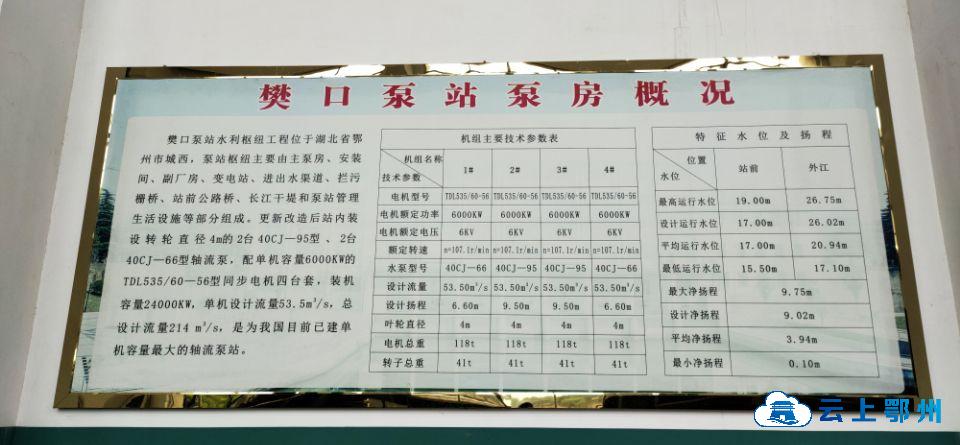 樊口泵站泵房概况
樊口泵站水利枢纽工程位于湖北省鄂
州市城西，泵站枢纽主要由主泵房、安装
间、副厂房、变电站、进出水渠道、拦污
栅桥、站前公路桥、长江干堤和泵站管理
生活设施等部分组成。更新改造后站内装
设转轮直径4m的2台40CJ—95型、2台
40CJ—66型轴流泵，配单机容量6000KW的
TDL535/60—56型同步电机四台套，装机
容量24000KW，单机设计流量53.5m³/s，总
设计流量214 m³/s，是为我国目前已建单
机容量最大的轴流泵站。
机组主要技术参数表
机组名称 技术参数 1# 2# 3# 4#
电机型号 TDL535/60-56 TDL535/60-56 TDL535/60-56 TDL535/60-56
电机额定功率 6000KW 6000KW 6000KW 6000KW
电机额定电压 6KV 6KV 6KV 6KV
额定转速 n=107.1r/min n=107.1r/min n=107.1r/min n=107.1r/min
水泵型号 40CJ—66 40CJ—95 40CJ—95 40CJ—66
设计流量 53.50m³/s 53.50m³/s 53.50m³/s 53.50m³/s
设计扬程 6.60m 9.50m 9.50m 6.60m
叶轮直径 4m 4m 4m 4m
电机总重 118t 118t 118t 118t
转子总重 41t 41t 41t 41t
特征水位及扬程
位置 水位 站前 外江
最高运行水位 19.00m 26.75m
设计运行水位 17.00m 26.02m
平均运行水位 17.00m 20.94m
最低运行水位 15.50m 17.10m
最大净扬程 9.75m
设计净扬程 9.02m
平均净扬程 3.94m
最小净扬程 0.10m
云上鄂州